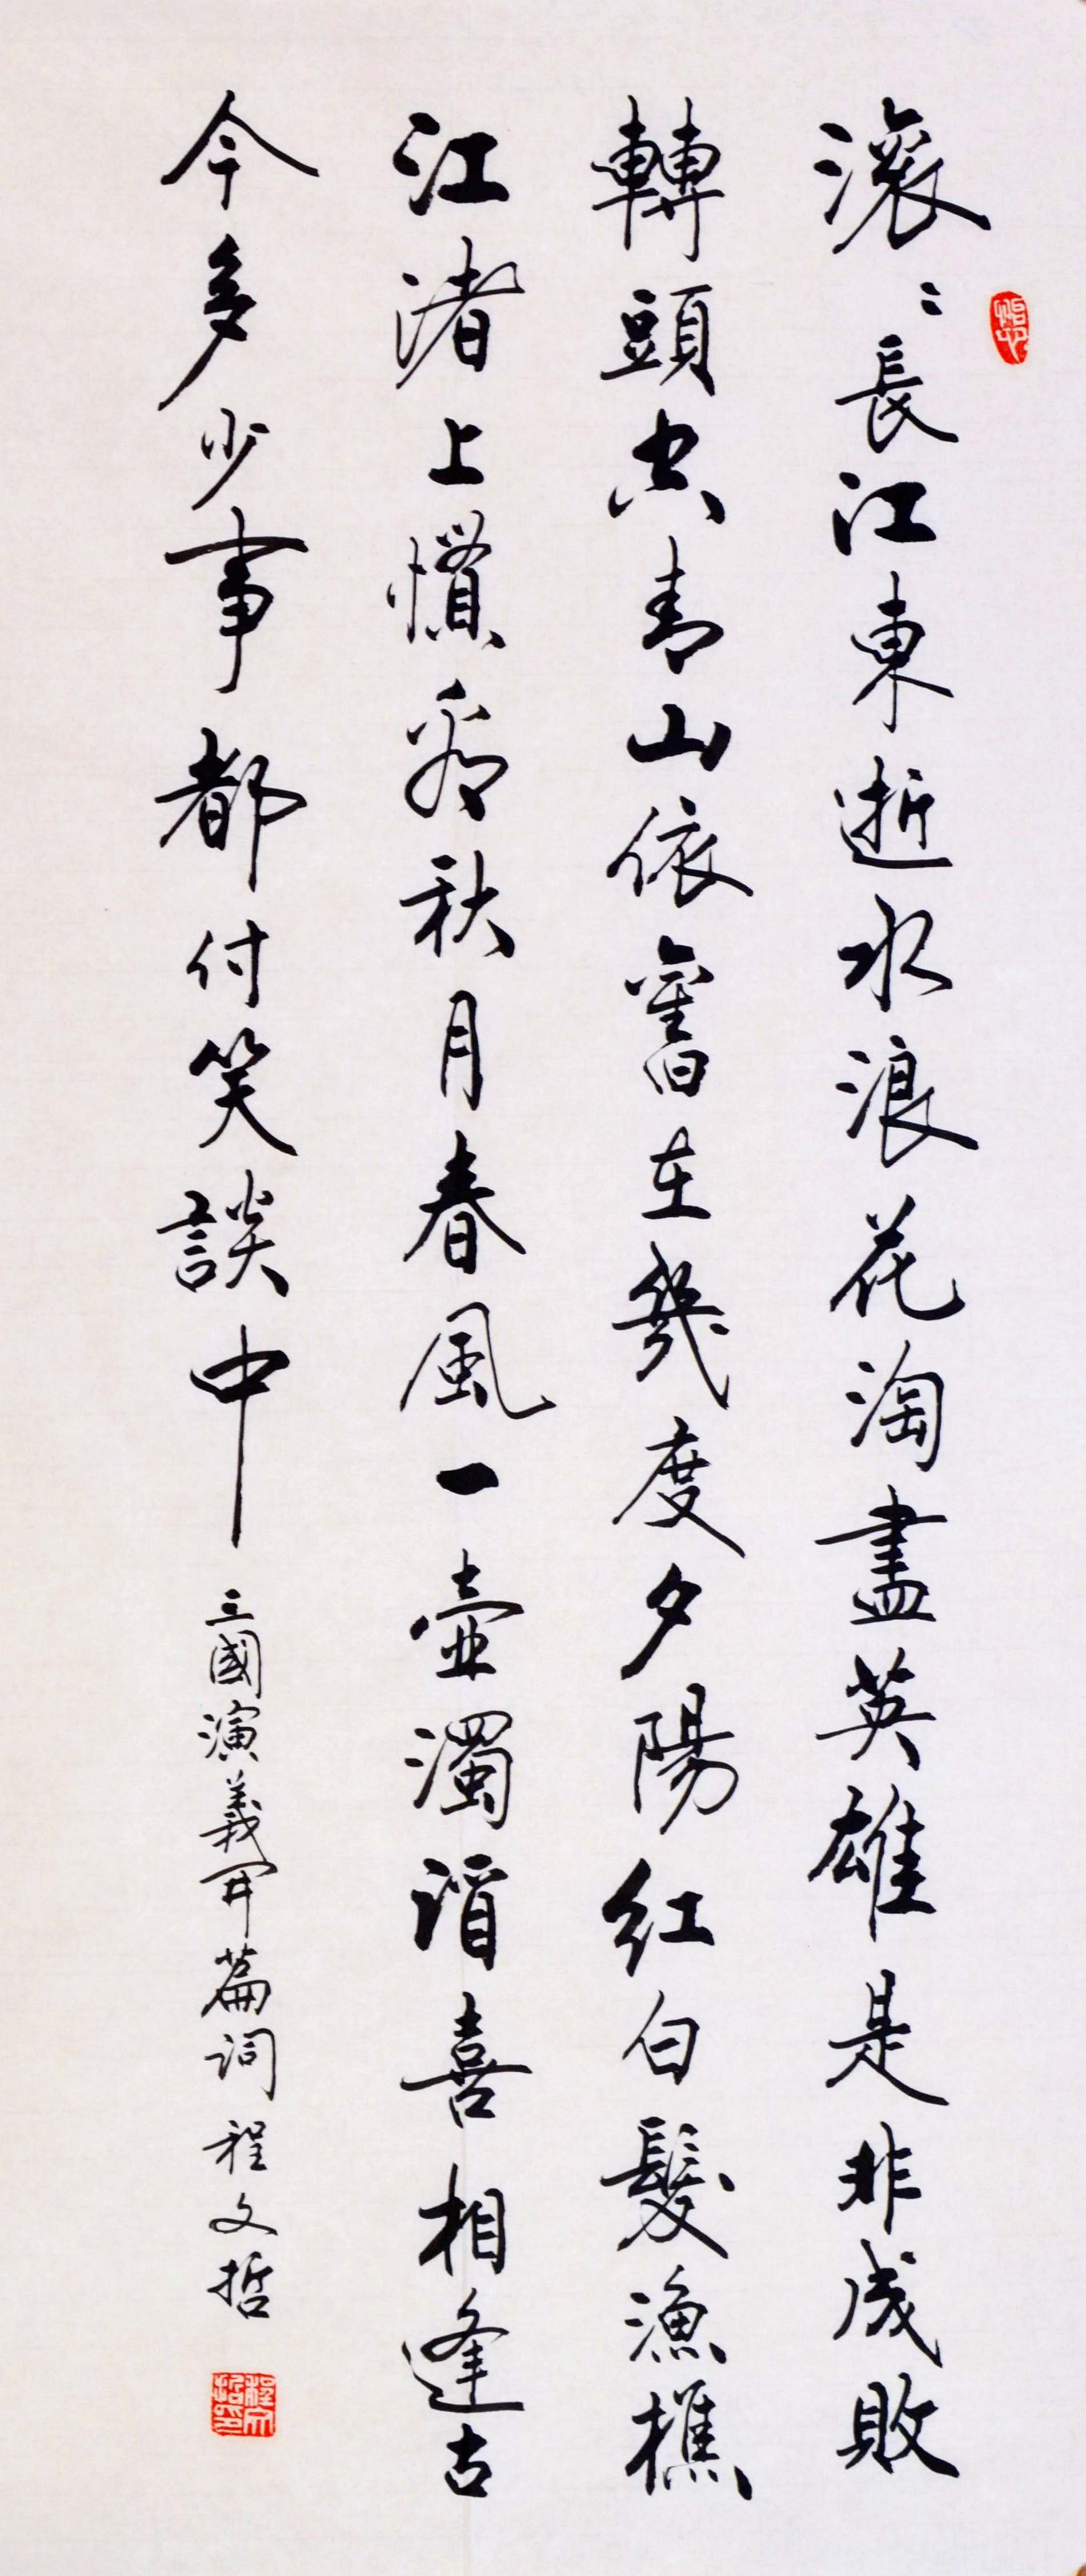 滾〻長江東逝水浪花淘盡英雄是非成敗
轉頭空青山依舊在幾度夕陽紅白髮漁樵
江渚上慣看秋月春風一壺濁酒喜相逢古
今多少事都付笑談中
三國演義開篇詞 程文哲
程文哲印